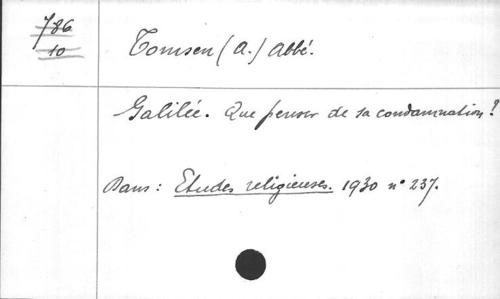 786
10
Tomsen (A.) Abbé.
Galilée. Que penser de sa condamnation?
Dans: Etudes religieuses. 1930 n° 237.